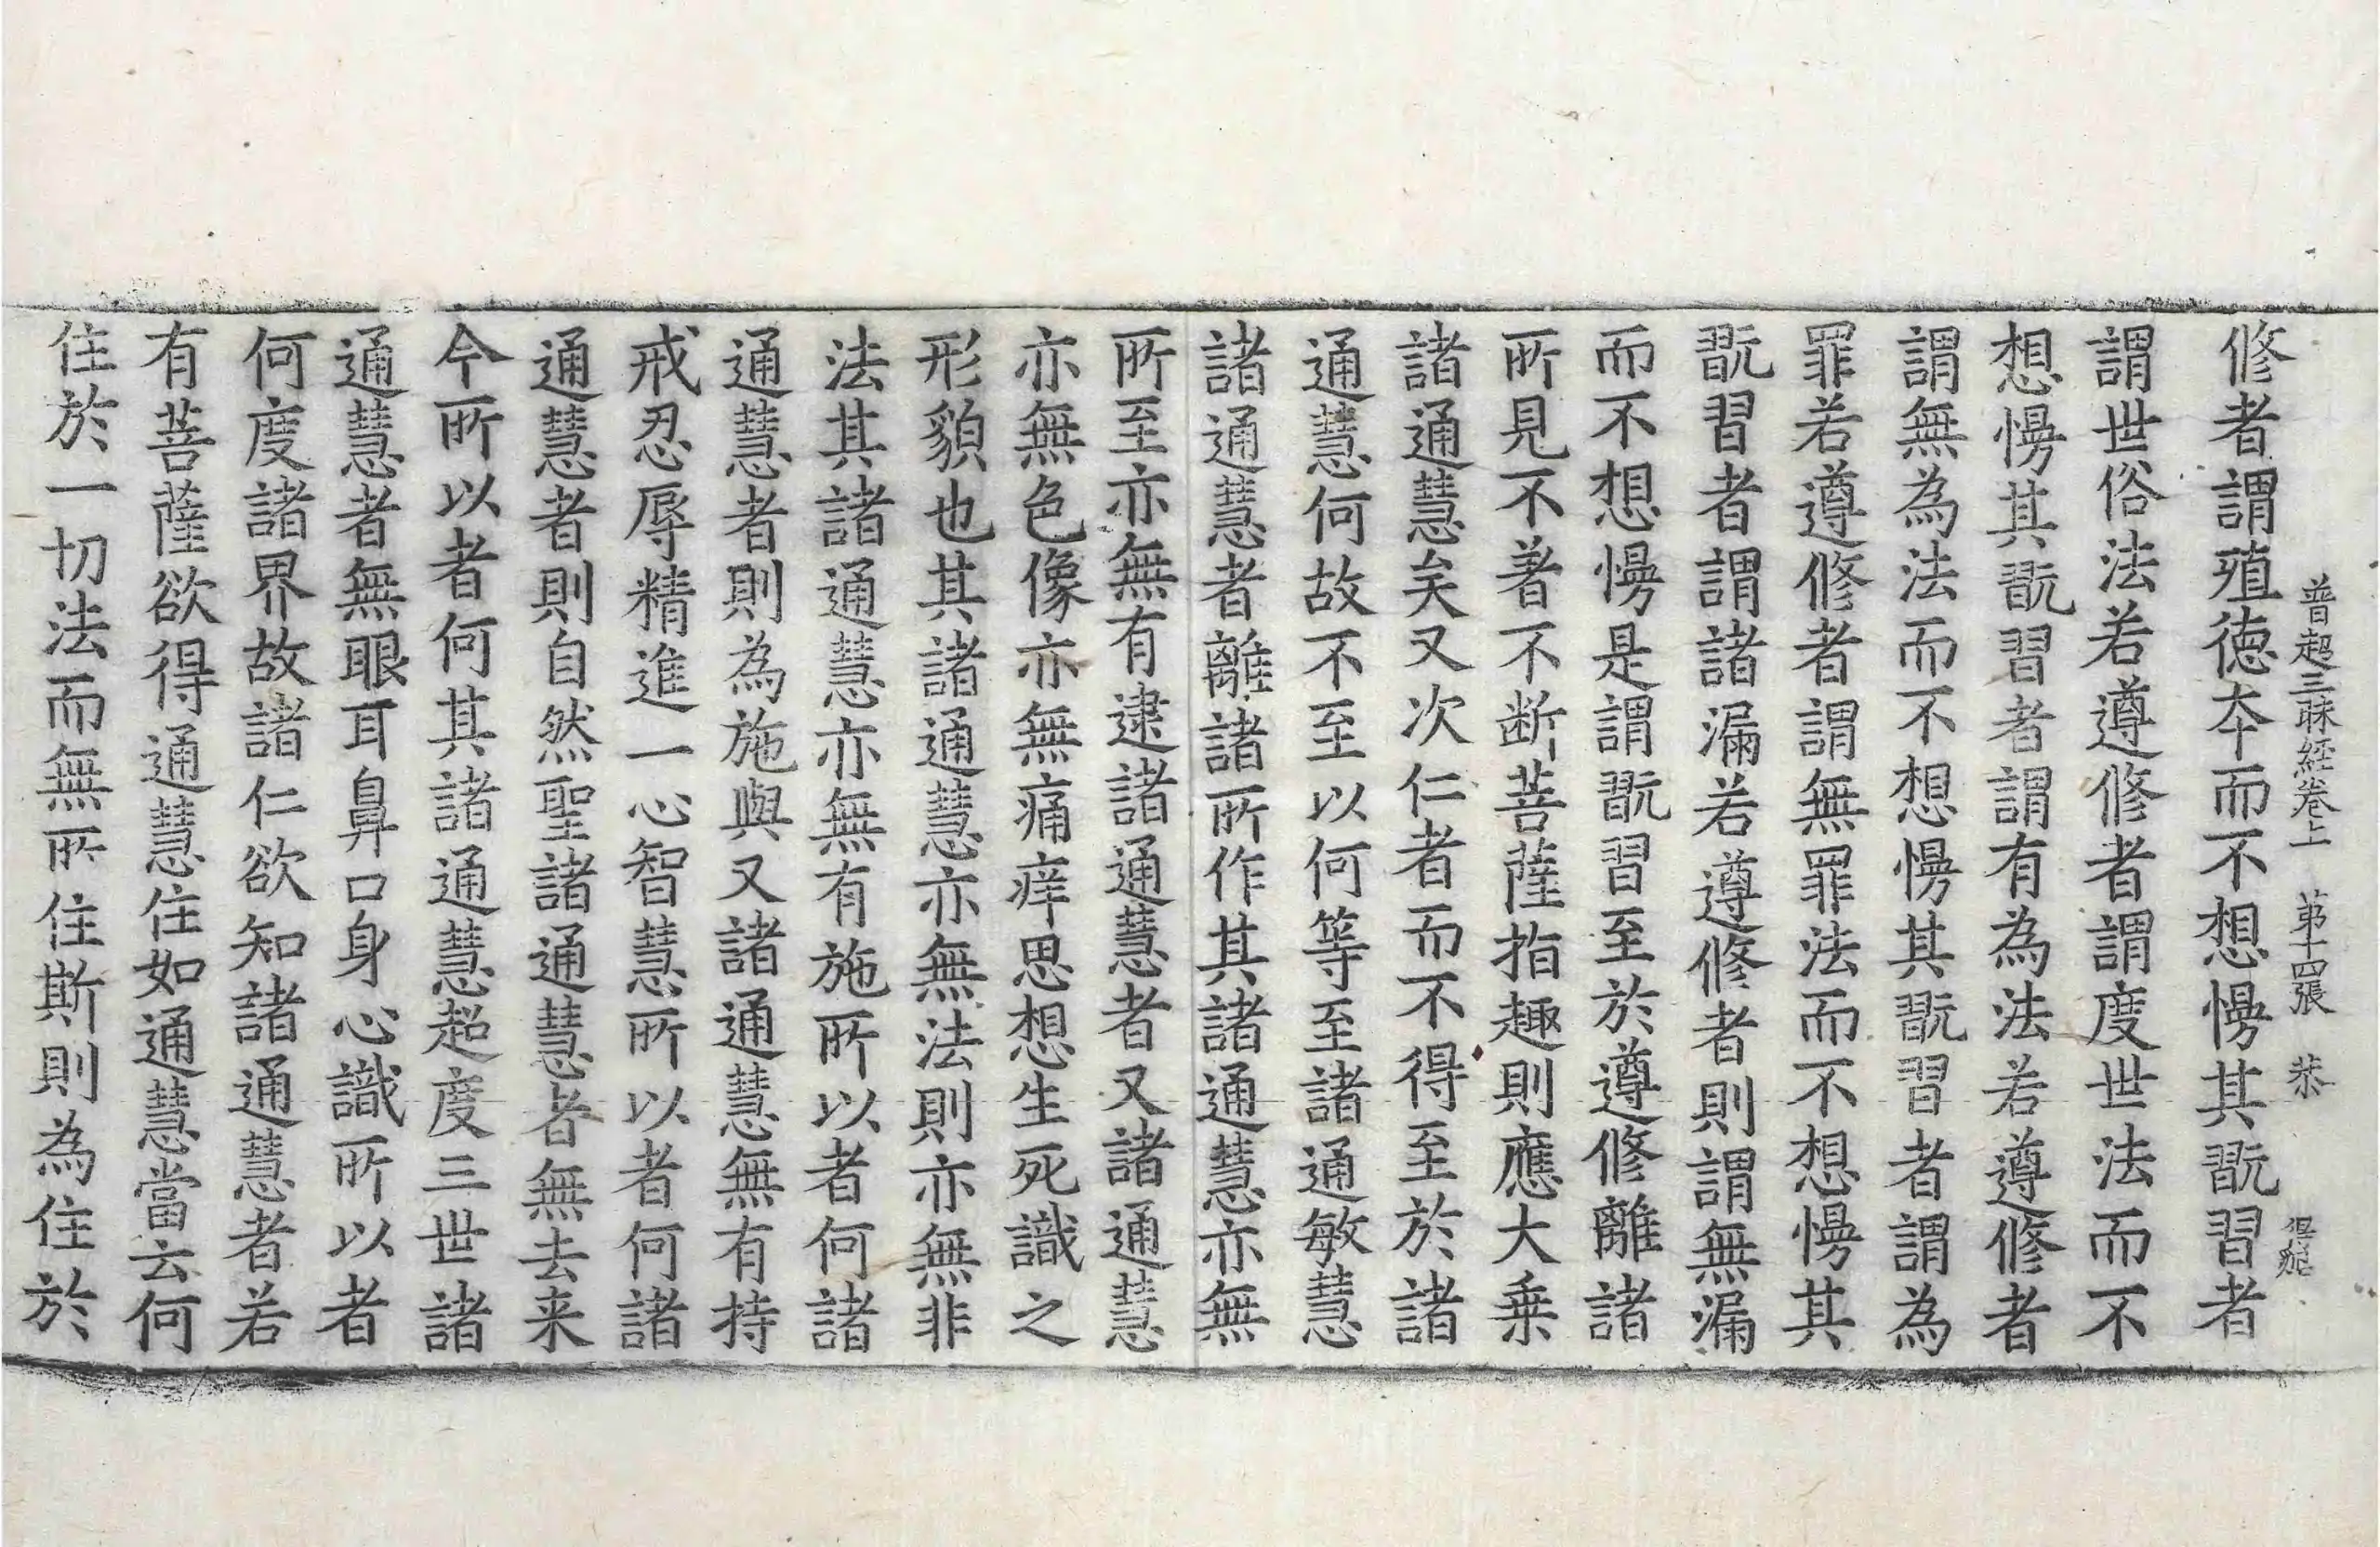 普超三昧経卷上　苐十四張　㳟
修者謂殖徳夲而不想慢其翫習者
謂世俗法若遵修者謂度世法而不
想慢其翫習者謂有為法若遵修者
謂無為法而不想慢其翫習者謂為
罪若遵修者謂無罪法而不想慢其
翫習者謂諸漏若遵修者則謂無漏
而不想慢是謂翫習至於遵修離諸
所見不著不断菩薩指趣則應大乗
諸通慧矣又次仁者而不得至於諸
通慧何故不至以何等至諸通敏慧
諸通慧者離諸所作其諸通慧亦無
所至亦無有逮諸通慧者又諸通慧
亦無色像亦無痛痒思想生死識之
形貌也其諸通慧亦無法則亦無非
法其諸通慧亦無有施所以者何諸
通慧者則為施與又諸通慧無有持
戒忍辱精進一心智慧所以者何諸
通慧者則自然聖諸通慧者無去来
今所以者何其諸通慧超度三世諸
通慧者無眼耳鼻口身心識所以者
何度諸界故諸仁欲知諸通慧者若
有菩薩欲得通慧住如通慧當云何
住於一切法而無所住斯則為住於